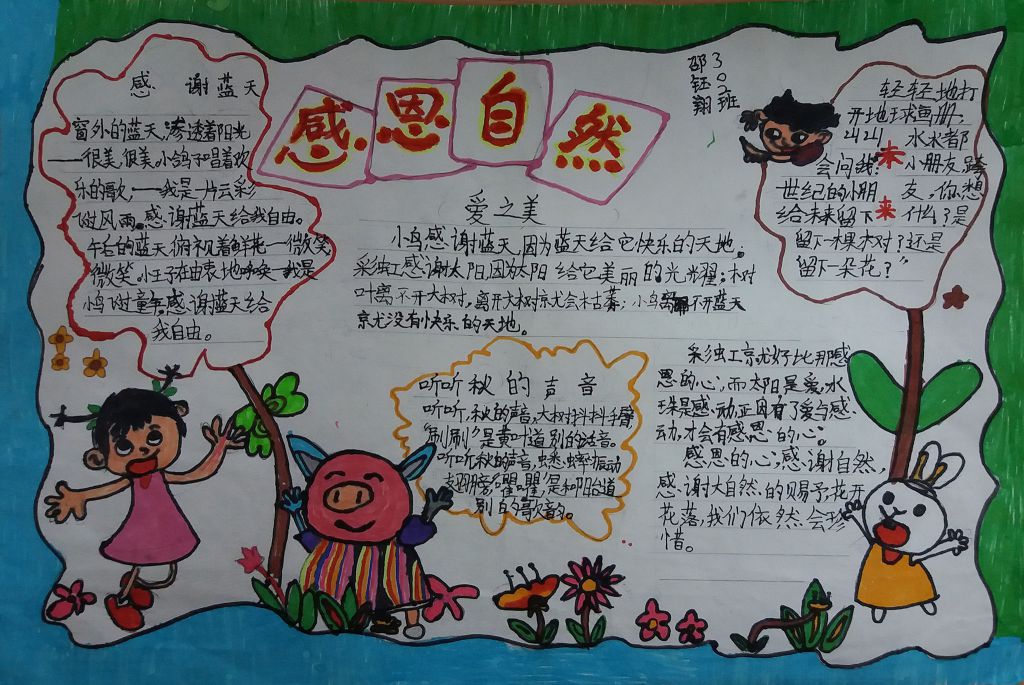 感恩自然
302班
邵钰翔
感谢蓝天
窗外的蓝天,渗透着阳光
——很美,很美,小鸽子唱着欢
乐的歌,——我是一片云彩
风雨。感谢蓝天给我自由。
的蓝天俯视着鲜花——微笑
微笑,小王子在由衷地呼唤——我是
小鸟感谢蓝天给
我自由。
爱之美
小鸟感谢蓝天,因为蓝天给它快乐的天地。
彩虹感谢太阳,因为太阳给它美丽的光耀;树
叶离不开大树,离开大树就会枯落;小鸟离不开蓝天
就没有快乐的天地。
轻轻地打
开地球画册,
山山水水都
会问我:"小朋友,跨
世纪的小朋友,你想
给未来留下什么?是
留下一棵树?还是
留下一朵花?"
未
来
听听秋的声音
听听,秋的声音,大树抖抖手臂,
"刷刷"是黄叶道别的话音。
听听,秋的声音,蟋蟀振动
翅膀"㘗㘗"是和阳台道
别的歌韵。
彩虹就好比那感
恩的心,而太阳是爱,水
珠是感动,正因有了爱与感
动,才会有感恩的心。
感恩的心,感谢自然,
感谢大自然的赐予,花开
花落,我们依然会珍
惜。